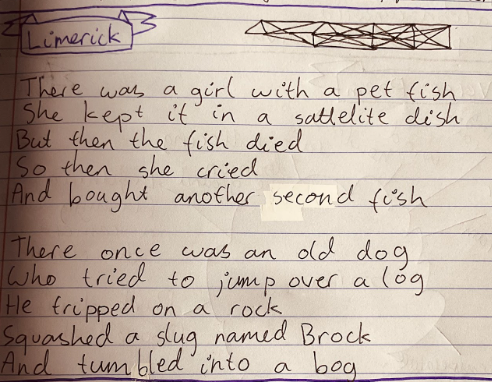 Limerick
There was a girl with a pet fish
She kept it in a sattelite dish
But then the fish died
So then she cried
And bought another second fish
There once was an old dog
Who tried to jump over a log
He tripped on a rock
Squashed a slug named Brock
And tumbled into a bog